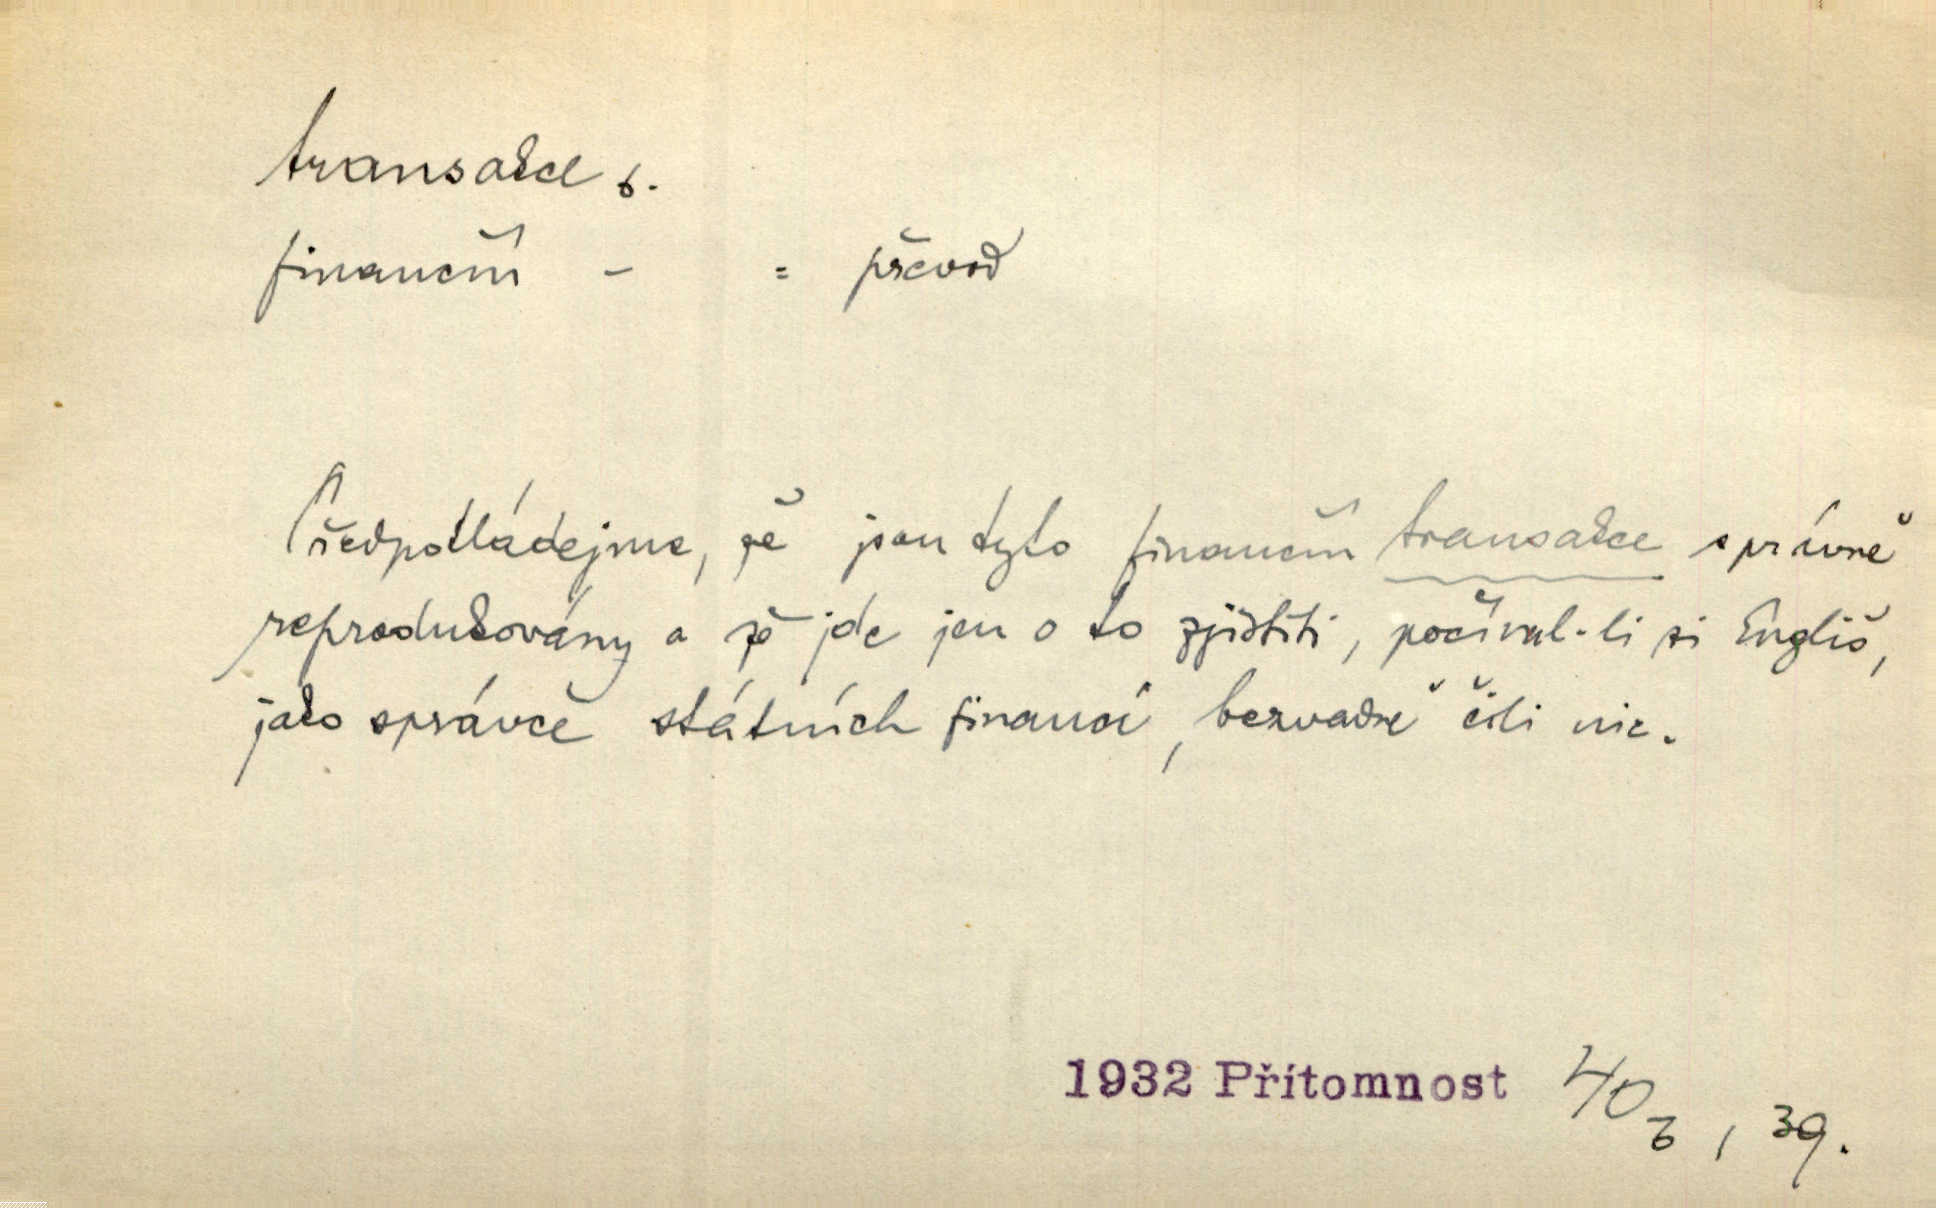 transakce ž.
finanční – = převod
Předpokládejme, že jsou tyto finanční transakce správně
reprodukovány a že jde jen o to zjistiti, počínal-li si Engliš,
jako správce státních financí, bezvadně čili nic.
1932 Přítomnost 40
3, 39.